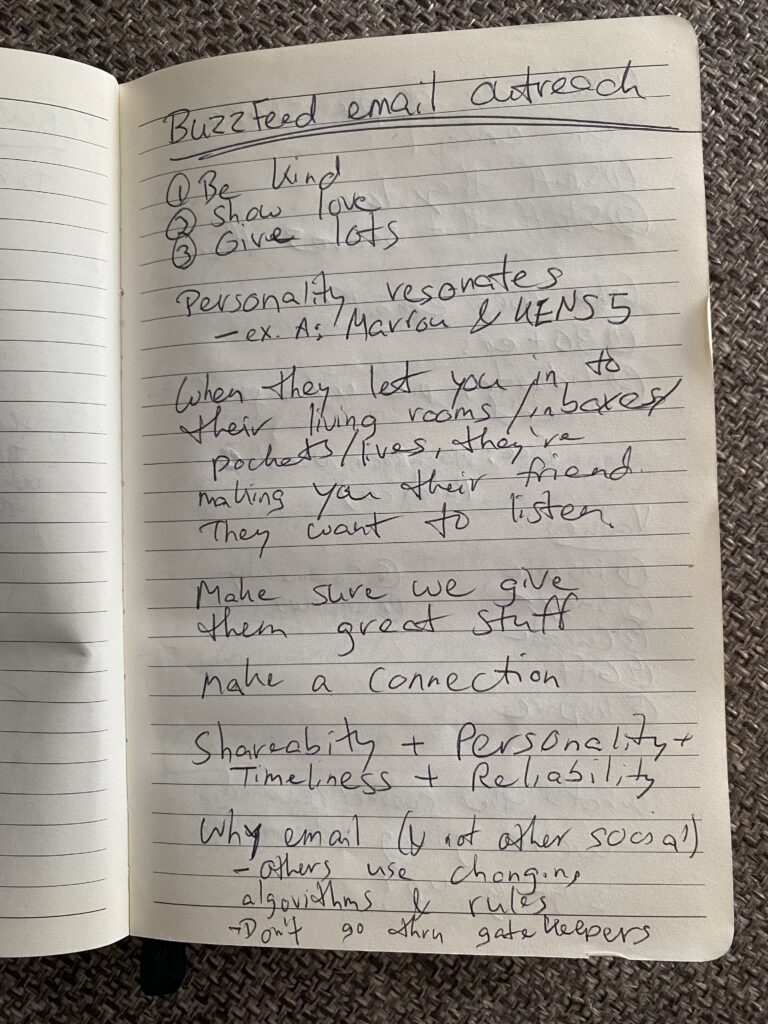 BuzzFeed email outreach
① Be kind
② Show love
③ Give lots
Personality resonates
- ex. A: Marlou & KENS 5
When they let you in to
their living rooms/inboxes/
pockets/lives, they're
making you their friend.
They want to listen.
Make sure we give
them great stuff
Make a connection
Shareabity + Personality +
Timeliness + Reliability
Why email (& not other social)
- others use changing
algorithms & rules
- Don't go thru gatekeepers